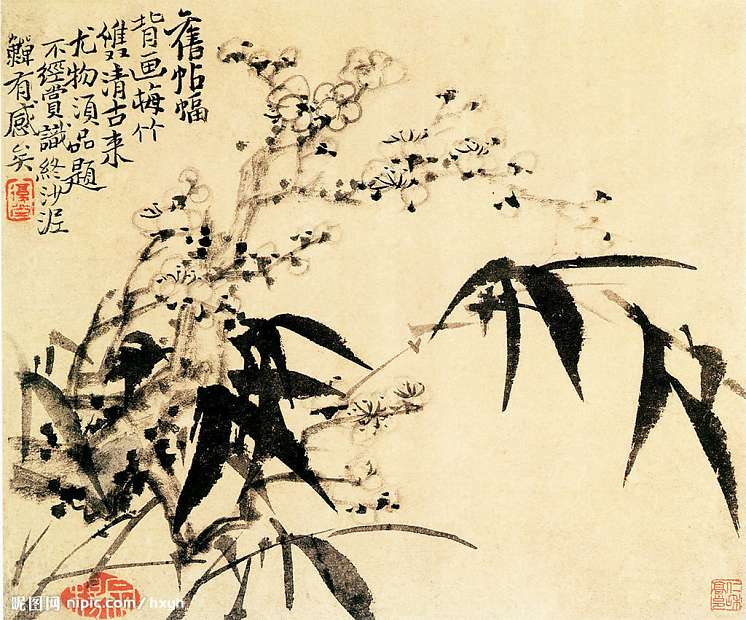 舊帖幅
背画梅竹
雙清古来
尤物須品題
不經賞識終沙泥
鱓有感矣
昵图网 nipic.com/hxuh